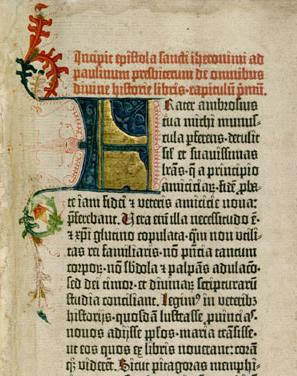 Incipit epistola sancti iheronimi ad
paulinum presbiterum de omnibus
divine historie libris· capitulū p̄mū.
Frater ambrosius
tua michi munus-
cula ꝑferens· detulit
sił et suavissimas
lr̄as· q̄ a principio
amiciciaꝝ· fidē ꝓba-
te iam fidei ⁊ veteris amicicie nova:
p̄ferebant. Vera em̄ illa necessitudo ē·
⁊ xp̄i glutino copulata· qm̄ non utili-
tas rei familiaris· nō pn̄tia tantum
corpoꝝ· nō sb̄dola ⁊ palpās adulacō·
sed dei timor· et divinaꝝ scripturarū
studia conciliant. Legimꝰ in veteribꝫ
historijs· quosdā lustrasse ꝓuīcias·
novos adijsse pp̄los· maria trāsisse·
ut eos quos ex libris noverant: corā
qꝫ viderēt. Sicut pitagoras memphi-